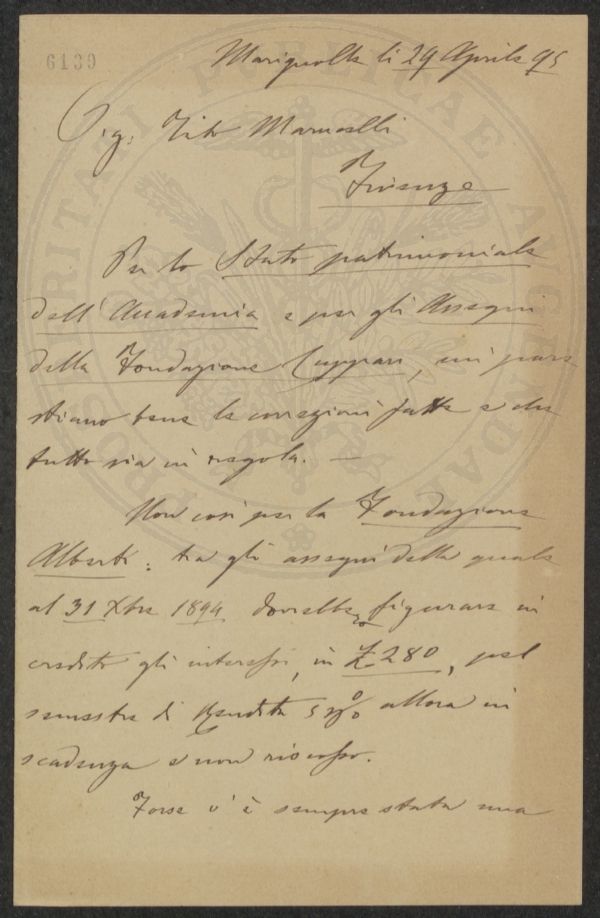 6139
Marignolle li 29 Aprile 95
Sig. Tito Marucelli
Firenze
Per lo Stato patrimoniale
dell' Accademia e per gli Assegni
della Fondazione Cuppari, mi pare
stiano bene le correzioni fatte e che
tutto sia in regola. —
Non così per la Fondazione
Alberti: tra gli assegni della quale
al 31 Xbre 1894 dovrebbero figurare in
credito gli interessi, in £ 280, pel
semestre di Rendita 5 % allora in
scadenza e non riscosso.
Forse v'è sempre stata una